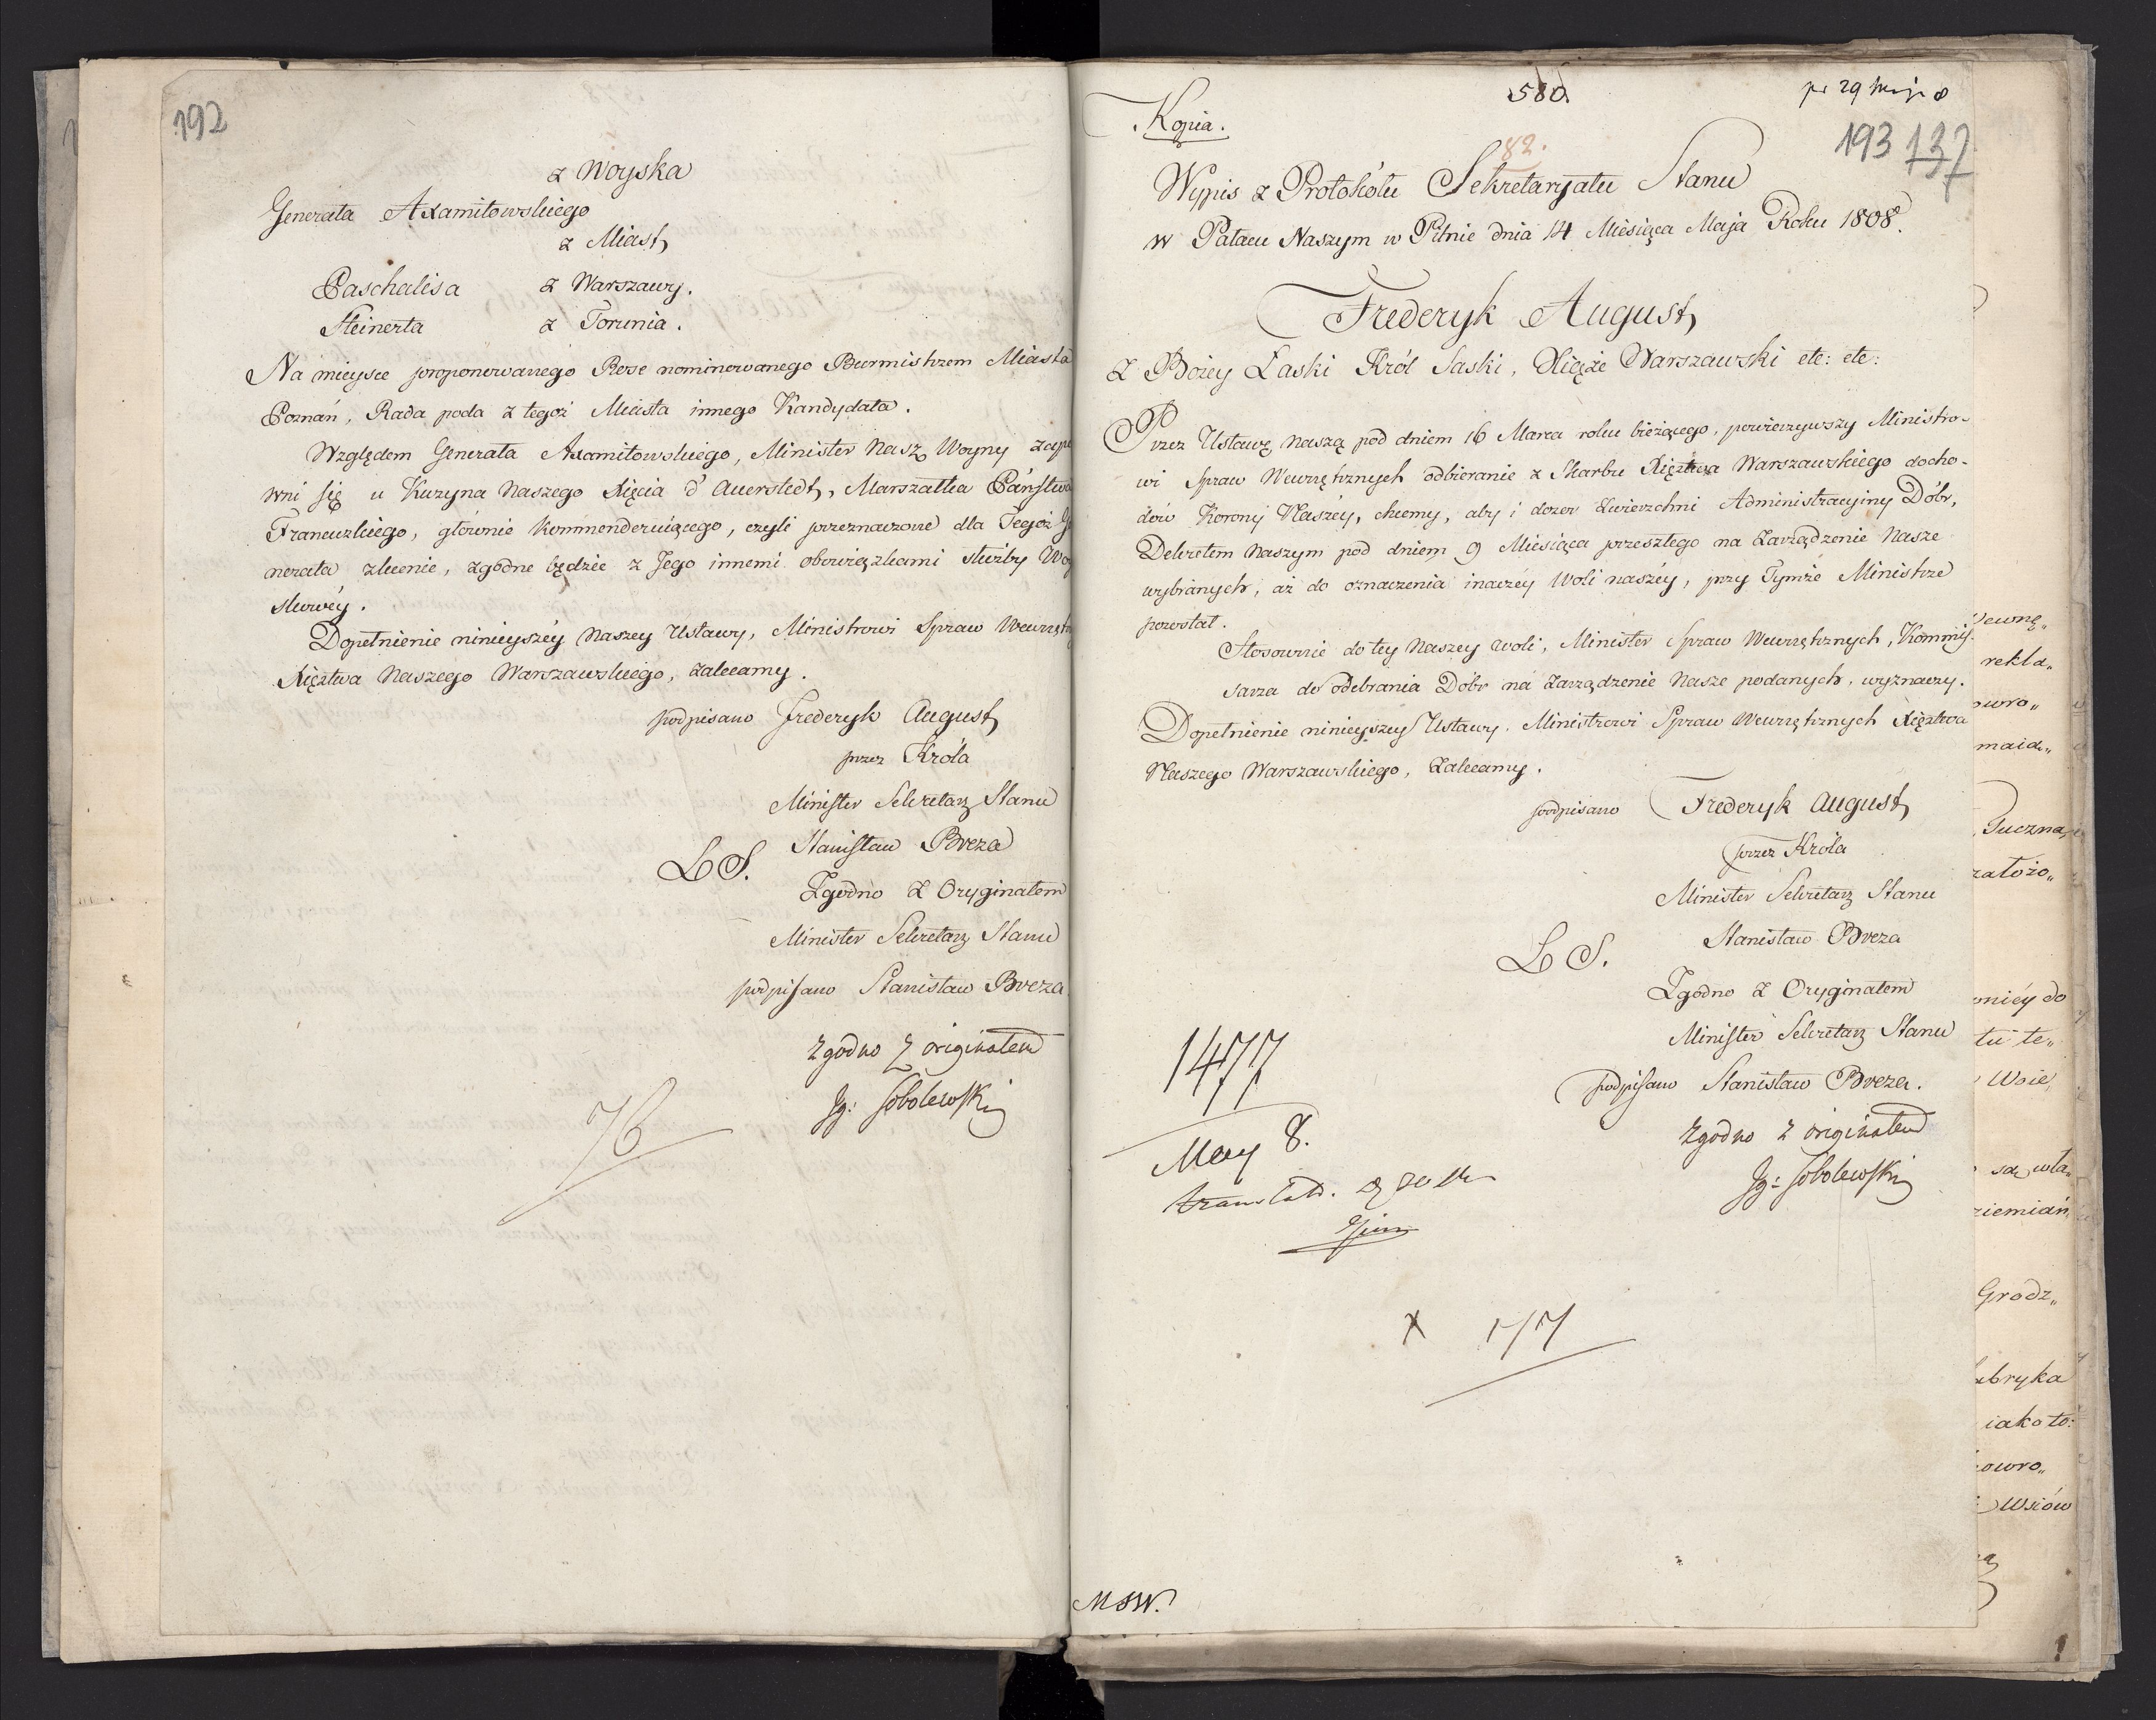 192
z Woyska
Generała Axamitowskiego
z Miast
Paschalisa z Warszawy.
Steinerta z Torunia.
Na mieysce proponowanego Rose nominowanego Burmistrzem Miasta
Poznań, Rada poda z tegoż Miasta innego Kandydata.
Względem Generała Axamitowskiego, Minister Nasz Woyny zape
wni się u Kuzyna Naszego Xięcia d'Auerstedt, Marszałka Państwa
Francuzkiego, głównie kommenderuiącego, czyli przeznaczone dla Tegoż Ge
nerała zlecenie, zgodne będzie z Jego innemi obowiązkami służby Woy
skowéy.
Dopełnienie ninieyszéy Naszey Ustawy, Ministrowi Spraw Wewnętrz
Xięztwa Naszego Warszawskiego, zalecamy.
podpisano Frederyk August
przez Króla
Minister Sekretarz Stanu
Stanisław Breza
L S.
Zgodno z Oryginałem
Minister Sekretarz Stanu
podpisano Stanisław Breza
Zgodno z originałem
Jg: Sobolewski
76
580.
pr 29 Maja 8
Kopia.
193 137
82.
Wypis z Protokółu Sekretaryatu Stanu
w Pałacu Naszym w Pilnie dnia 14 Miesiąca Maja Roku 1808.
Frederyk August
Z Bożey Łaski Król Saski, Xiąże Warszawski etc: etc:
Przez Ustawę naszą pod dniem 16 Marca roku bieżącego, powierzywszy Ministro-
wi Spraw Wewnętrznych odbieranie z Skarbu Xięztwa Warszawskiego docho-
dów Korony Naszéy, chcemy, aby i dozor Zwierzchni Administracyiny Dóbr,
Dekretem Naszym pod dniem 9 Miesiąca przeszłego na Zarządzenie Nasze
wybranych, aż do oznaczenia inaczéy Woli naszéy, przy Tymże Ministrze
pozostał.
Stosownie do tey Naszey woli, Minister Spraw Wewnętrznych, Kommis-
sarza do odebrania Dobr na Zarządzenie Nasze podanych, wyznaczy.
Dopełnienie ninieyszey Ustawy, Ministrowi Spraw Wewnętrznych Xięztwa
Naszego Warszawskiego, Zalecamy.
podpisano Frederyk August
przez Króla
Minister Sekretarz Stanu
Stanisław Breza
L S.
Zgodno z Oryginałem
Minister Sekretarz Stanu
podpisano Stanisław Breza.
Zgodno z originałem
Jg: Sobolewski
1477
May 8.
X 177
MSW.
Wewnę„
rekla„
owro„
maid„
Tuczna,
założo„
oniéy do
tu te„
Woie,
są wła„
ziemiań„
Grodz„
abryka
iako to:
owro„
Wsiów